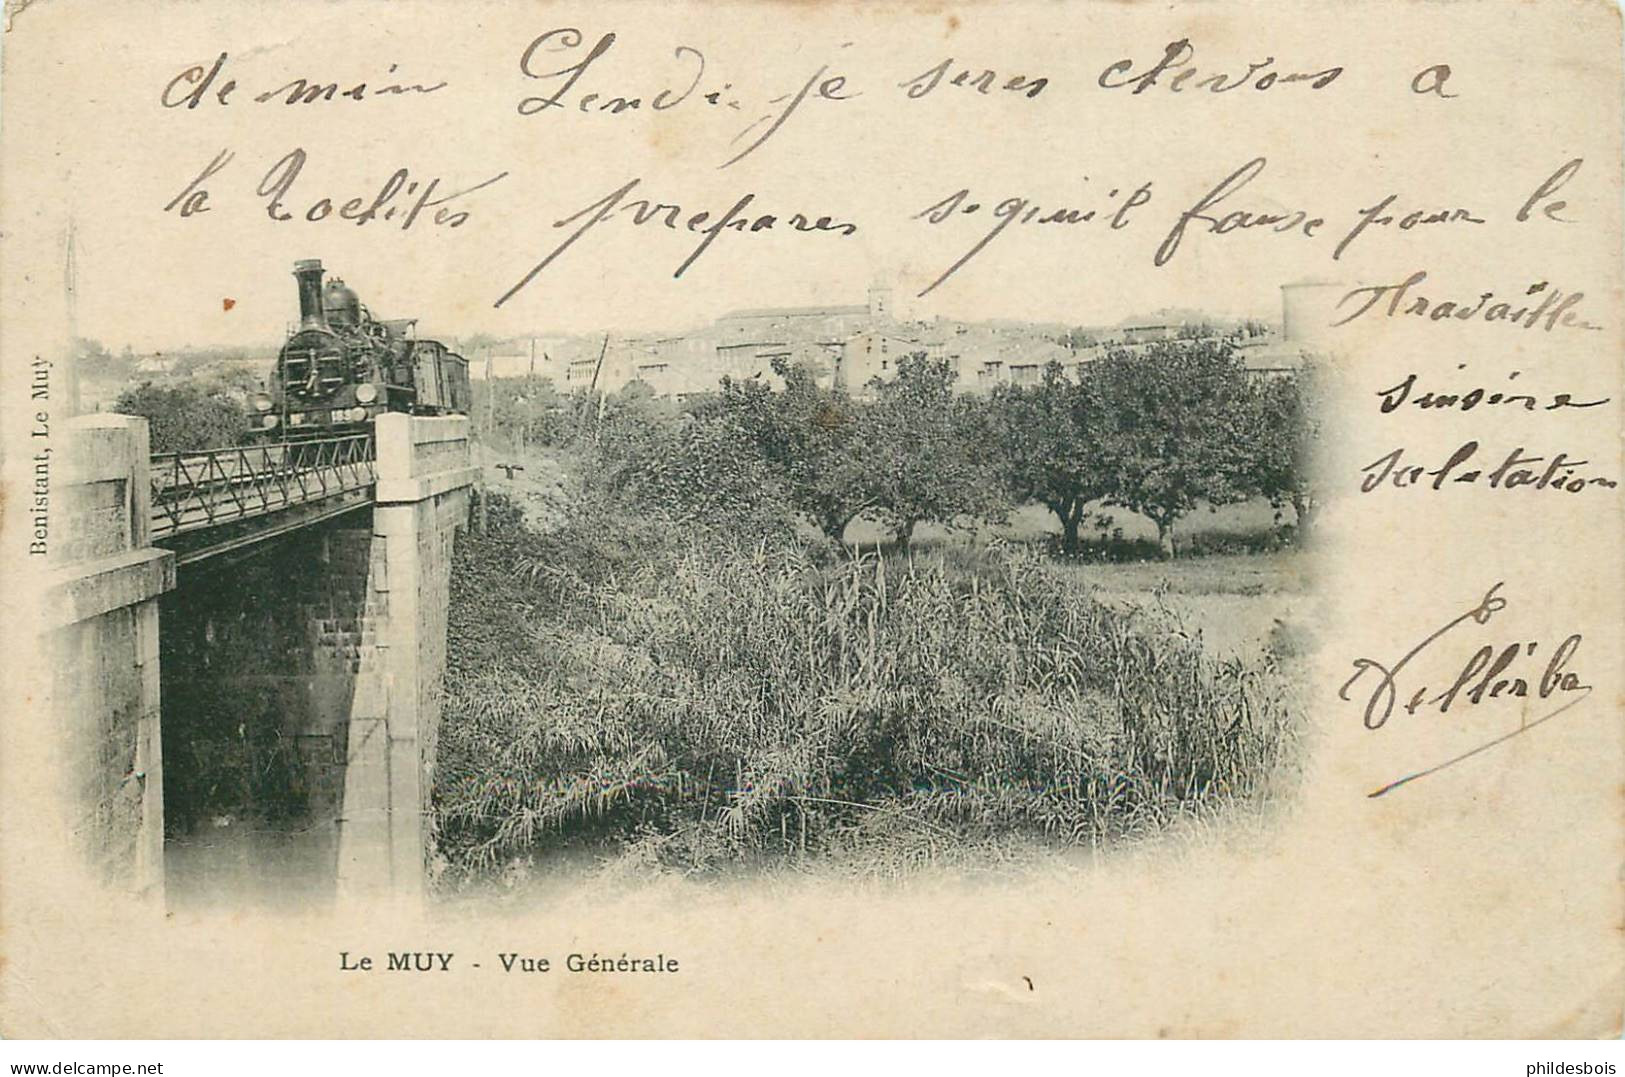 demin Lendi je seres chevous a
la Rochites prepares sequil fause pour le
travailler
sinsére
saletation
Vellérba
Benistant, Le Muy
Le MUY - Vue Générale
delcampe.net
phildesbois